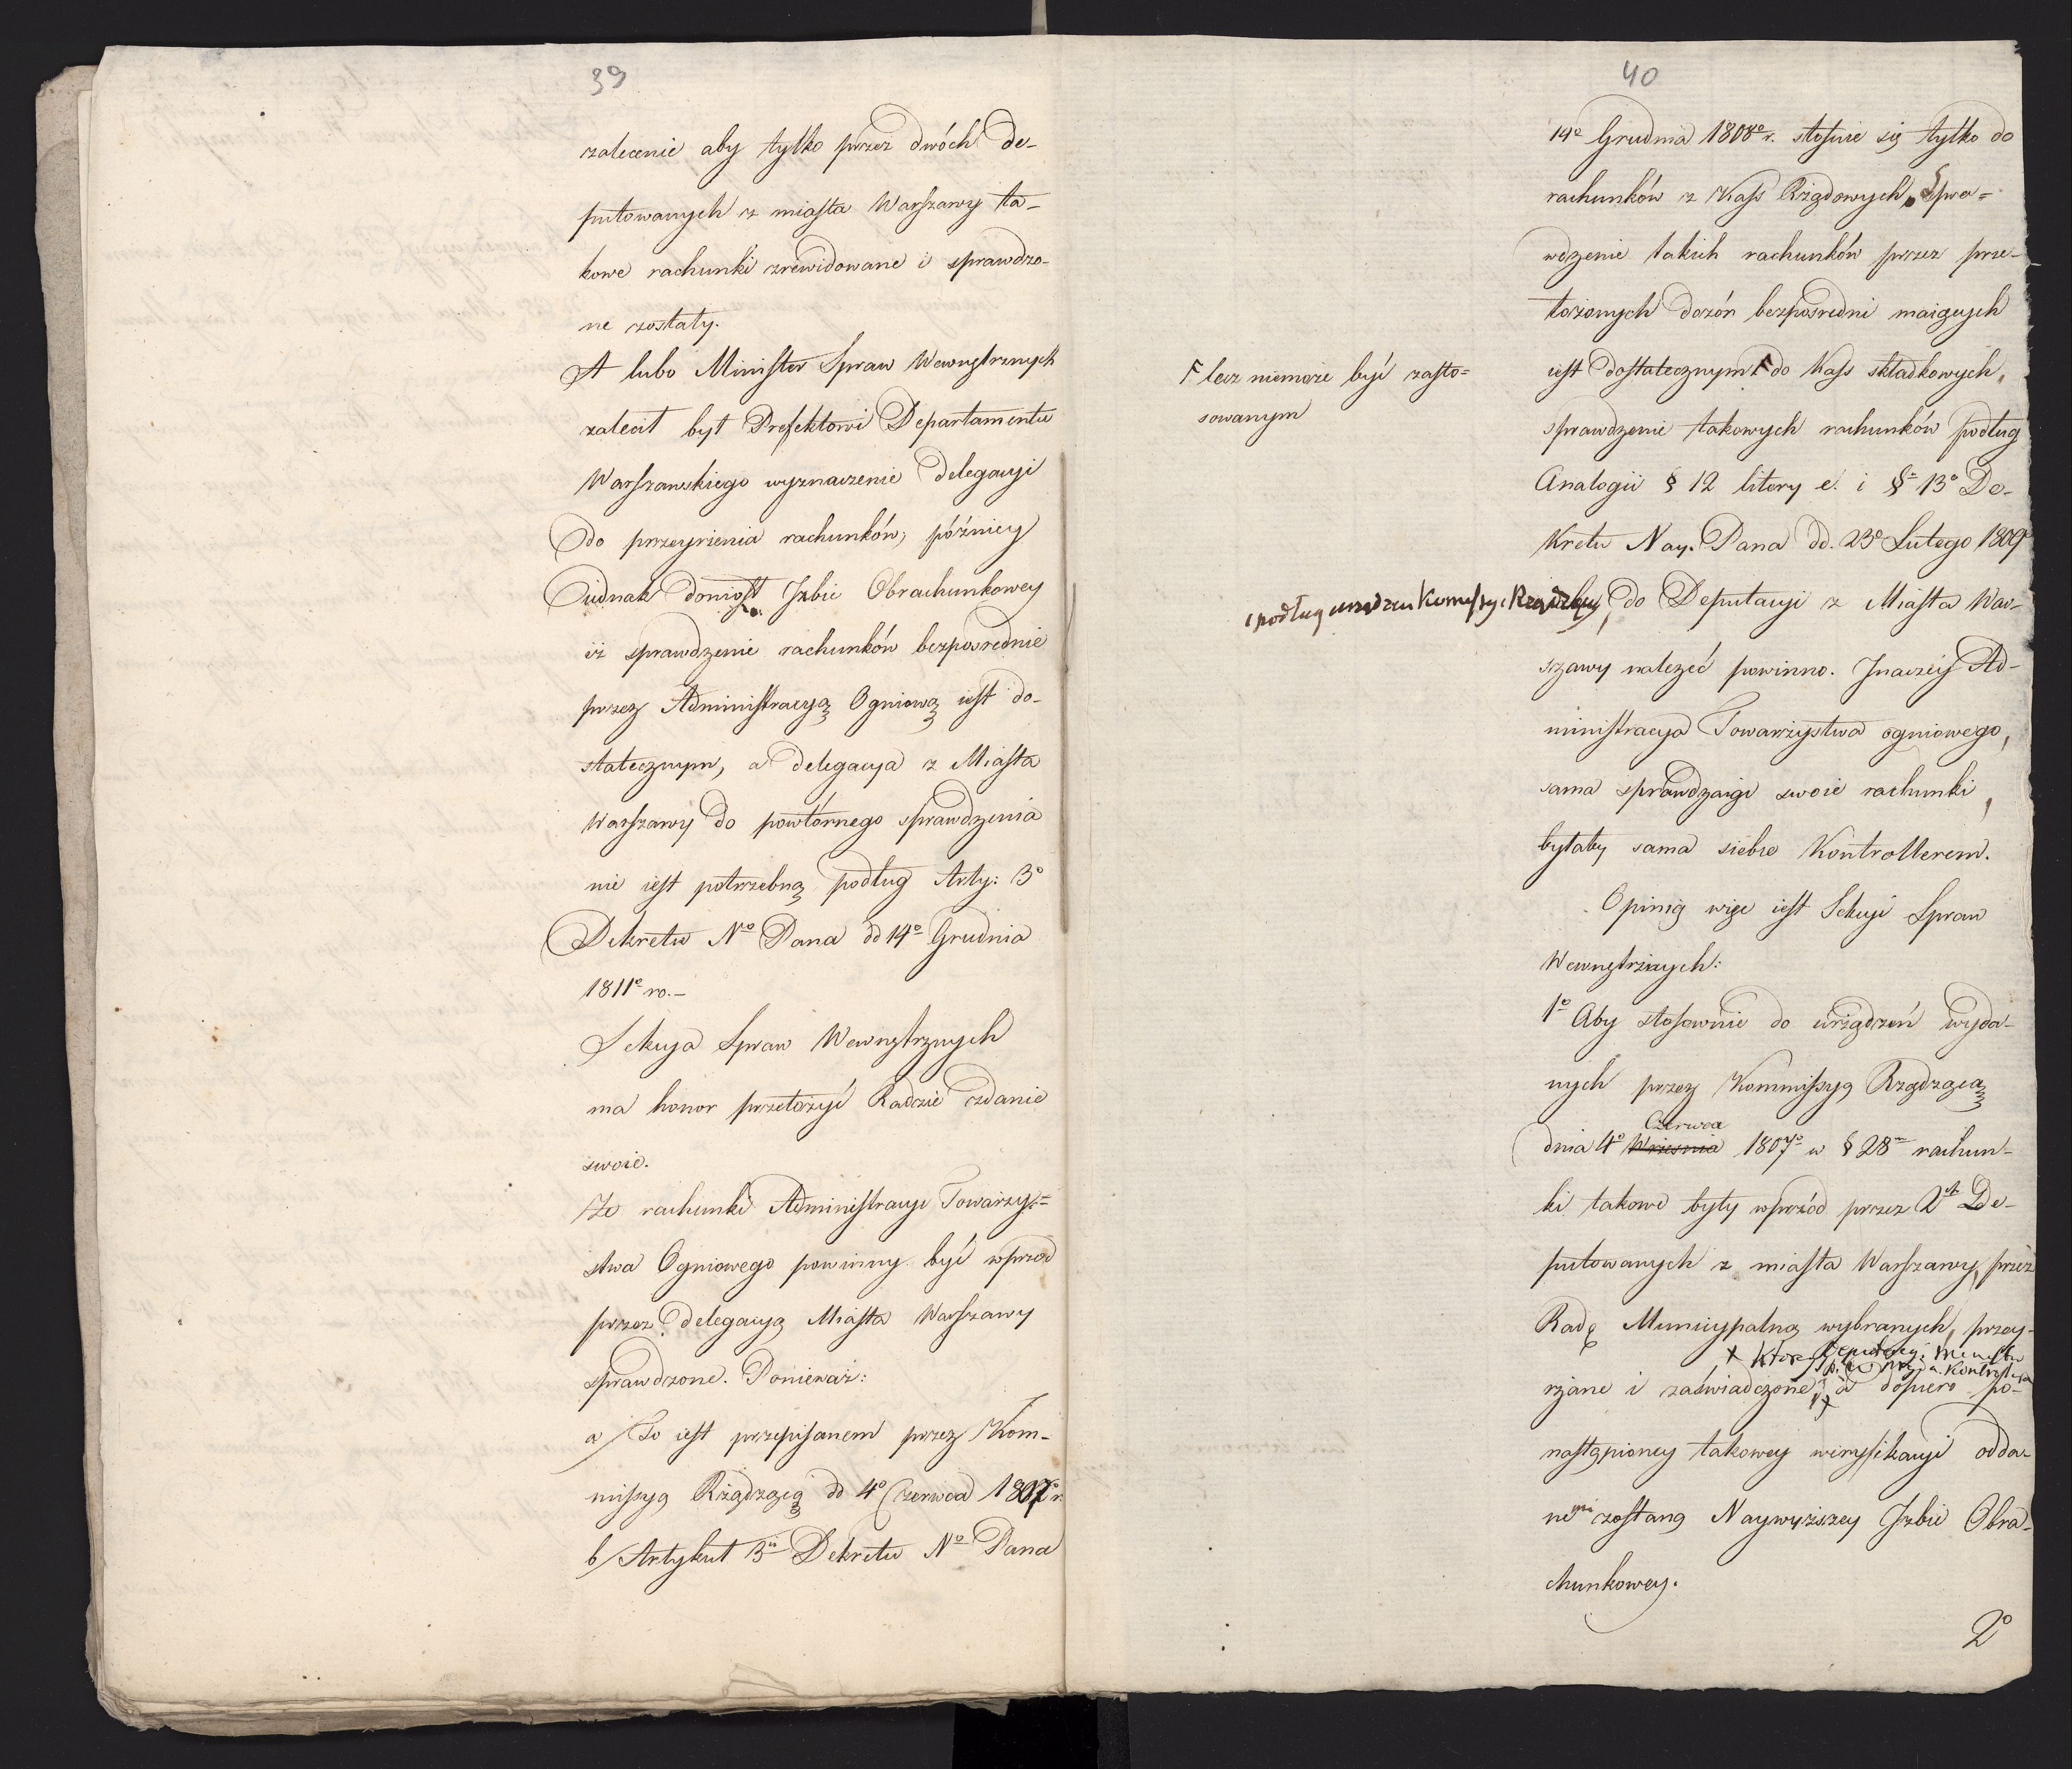 39
zalecenie aby tylko przez dwóch de-
putowanych z miasta Warszawy ta-
kowe rachunki zrewidowane i sprawdzo-
ne zostały.
A lubo Minister Spraw Wewnętrznych
zalecił był Prefektowi Departamentu
Warszawskiego wyznaczenie delegacyi
do przeyrzenia rachunków, późniey
iednak doniosł Izbie Obrachunkowey
iż sprawdzenie rachunków bezpośrednie
przez Administracyą Ogniową iest do-
statecznym, a delegacya z Miasta
Warszawy do powtórnego sprawdzenia
nie iest potrzebną podług Arty: 3º
Dekretu Nº Pana dd 14º Grudnia
1811º ro.-
Sekcya Spraw Wewnętrznych
ma honor przełożyć Radzie zdanie
swoie.
Że rachunki Administracyi Towarzy-
stwa Ogniowego powinny być wprzód
przez delegacyą Miasta Warszawy
sprawdzone. Ponieważ:
a/ To iest przepisanem przez Kom-
missyą Rządzącą dd 4º Czerwca 1807º r.
b/ Artykuł 3ii Dekretu Nº Pana
40
14º Grudnia 1808º r. stosuie się tylko do
rachunków z Kass Rządowych, Spra-
wdzenie takich rachunków przez prze-
łożonych dozór bezpośredni maiących
iest dostatecznym Γ do Kass składkowych,
Γ lecz niemoże być zasto-
sowanym
sprawdzenie takowych rachunków podług
Analogii § 12 litery e. i § 13º De-
kretu Nay. Pana dd. 23º Lutego 1809º
i podług urządzeń Komissyi Rządzącey, do Deputacyi z Miasta War-
szawy należeć powinno. Inaczéy Ad-
ministracya Towarzystwa ogniowego,
sama sprawdzaiąc swoie rachunki,
byłaby sama siebie Kontrollerem.
Opinią więc iest Sekcyi Spraw
Wewnętrznych:
1º Aby stosownie do urządzeń wyda-
nych przez Kommissyą Rządzącą
Czerwca
dnia 4º Wrzesnia 1807º w § 28m rachun-
ki takowe były wprzód przez 2ch De-
putowanych z miasta Warszawy, przez
Radę Municypalną wybranych, przey-
x Deputacyi
rzane i zaświadczone, x a dopiero po
nastąpioney takowey weryfikacyi odda-
ne zostaną Naywyższey Izbie Obra-
chunkowey.
2º